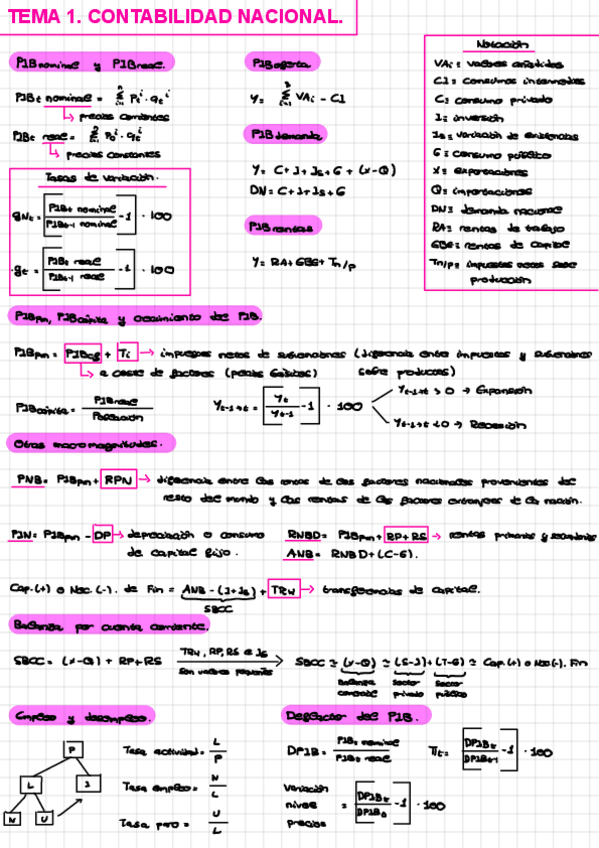 TEMA 1. CONTABILIDAD NACIONAL.
PIB nominal y PIB real.
PIBt nominal = Σ Pᵢ · qₜⁱ
→ precios corrientes
PIBt real = Σ P₀ⁱ · qₜⁱ
→ precios constantes
Tasas de variación.
gNt = [PIBt nominal / PIBt-1 nominal - 1] · 100
gt = [PIBt real / PIBt-1 real - 1] · 100
PIB oferta
Y = Σ VAi - CI
PIB demanda
Y = C + I + Is + G + (X-Q)
DN = C + I + Is + G
PIB rentas
Y = RA + GBE + Tn/p
Notación
VAi = valores añadidos
CI = consumos intermedios
C = consumo privado
I = inversión
Is = variación de existencias
G = consumo público
X = exportaciones
Q = importaciones
DN = demanda nacional
RA = rentas de trabajo
GBE = rentas de capital
Tn/p = impuestos netos sobre
producción
PIBpm, PIBcápita y crecimiento del PIB.
PIBpm = PIBcf + Ti → impuestos netos de subvenciones (diferencia entre impuestos y subvenciones
→ a coste de factores sobre productos)
PIBcápita = PIB real / Población
Yt-1→t = [Yt / Yt-1 - 1] · 100
Yt-1→t > 0 → Expansión
Yt-1→t < 0 → Recesión
Otras macromagnitudes.
PNB = PIBpm + RPN → diferencia entre las rentas de los factores nacionales provenientes del
resto del mundo y las rentas de los factores extranjeros de la nación.
PIN = PIBpm - DP → depreciación o consumo
de capital fijo.
RNBD = PIBpm + RP + RS → rentas primarias y secundarias
ANB = RNBD + (C-G).
Cap.(+) o Nec.(-). de Fin = ANB - (I+Is) + TRW → transferencias de capital.
SBCC
Balanza por cuenta corriente.
SBCC = (X-Q) + RP + RS
TRW, RP, RS e Is
son valores pequeños
SBCC ≃ (X-Q) ≃ (S-I) + (T-G) ≃ Cap.(+) o Nec(-). Fin
balanza comercial
sector privado
sector público
Empleo y desempleo.
P
L
I
N
U
Tasa actividad = L / P
Tasa empleo = N / L
Tasa paro = U / L
Deflactor del PIB.
DPIB = PIBt nominal / PIBt real
πt = [DPIBt / DPIBt-1 - 1] · 100
Variación
nivel
precios
= [DPIBt / DPIB0 - 1] · 100